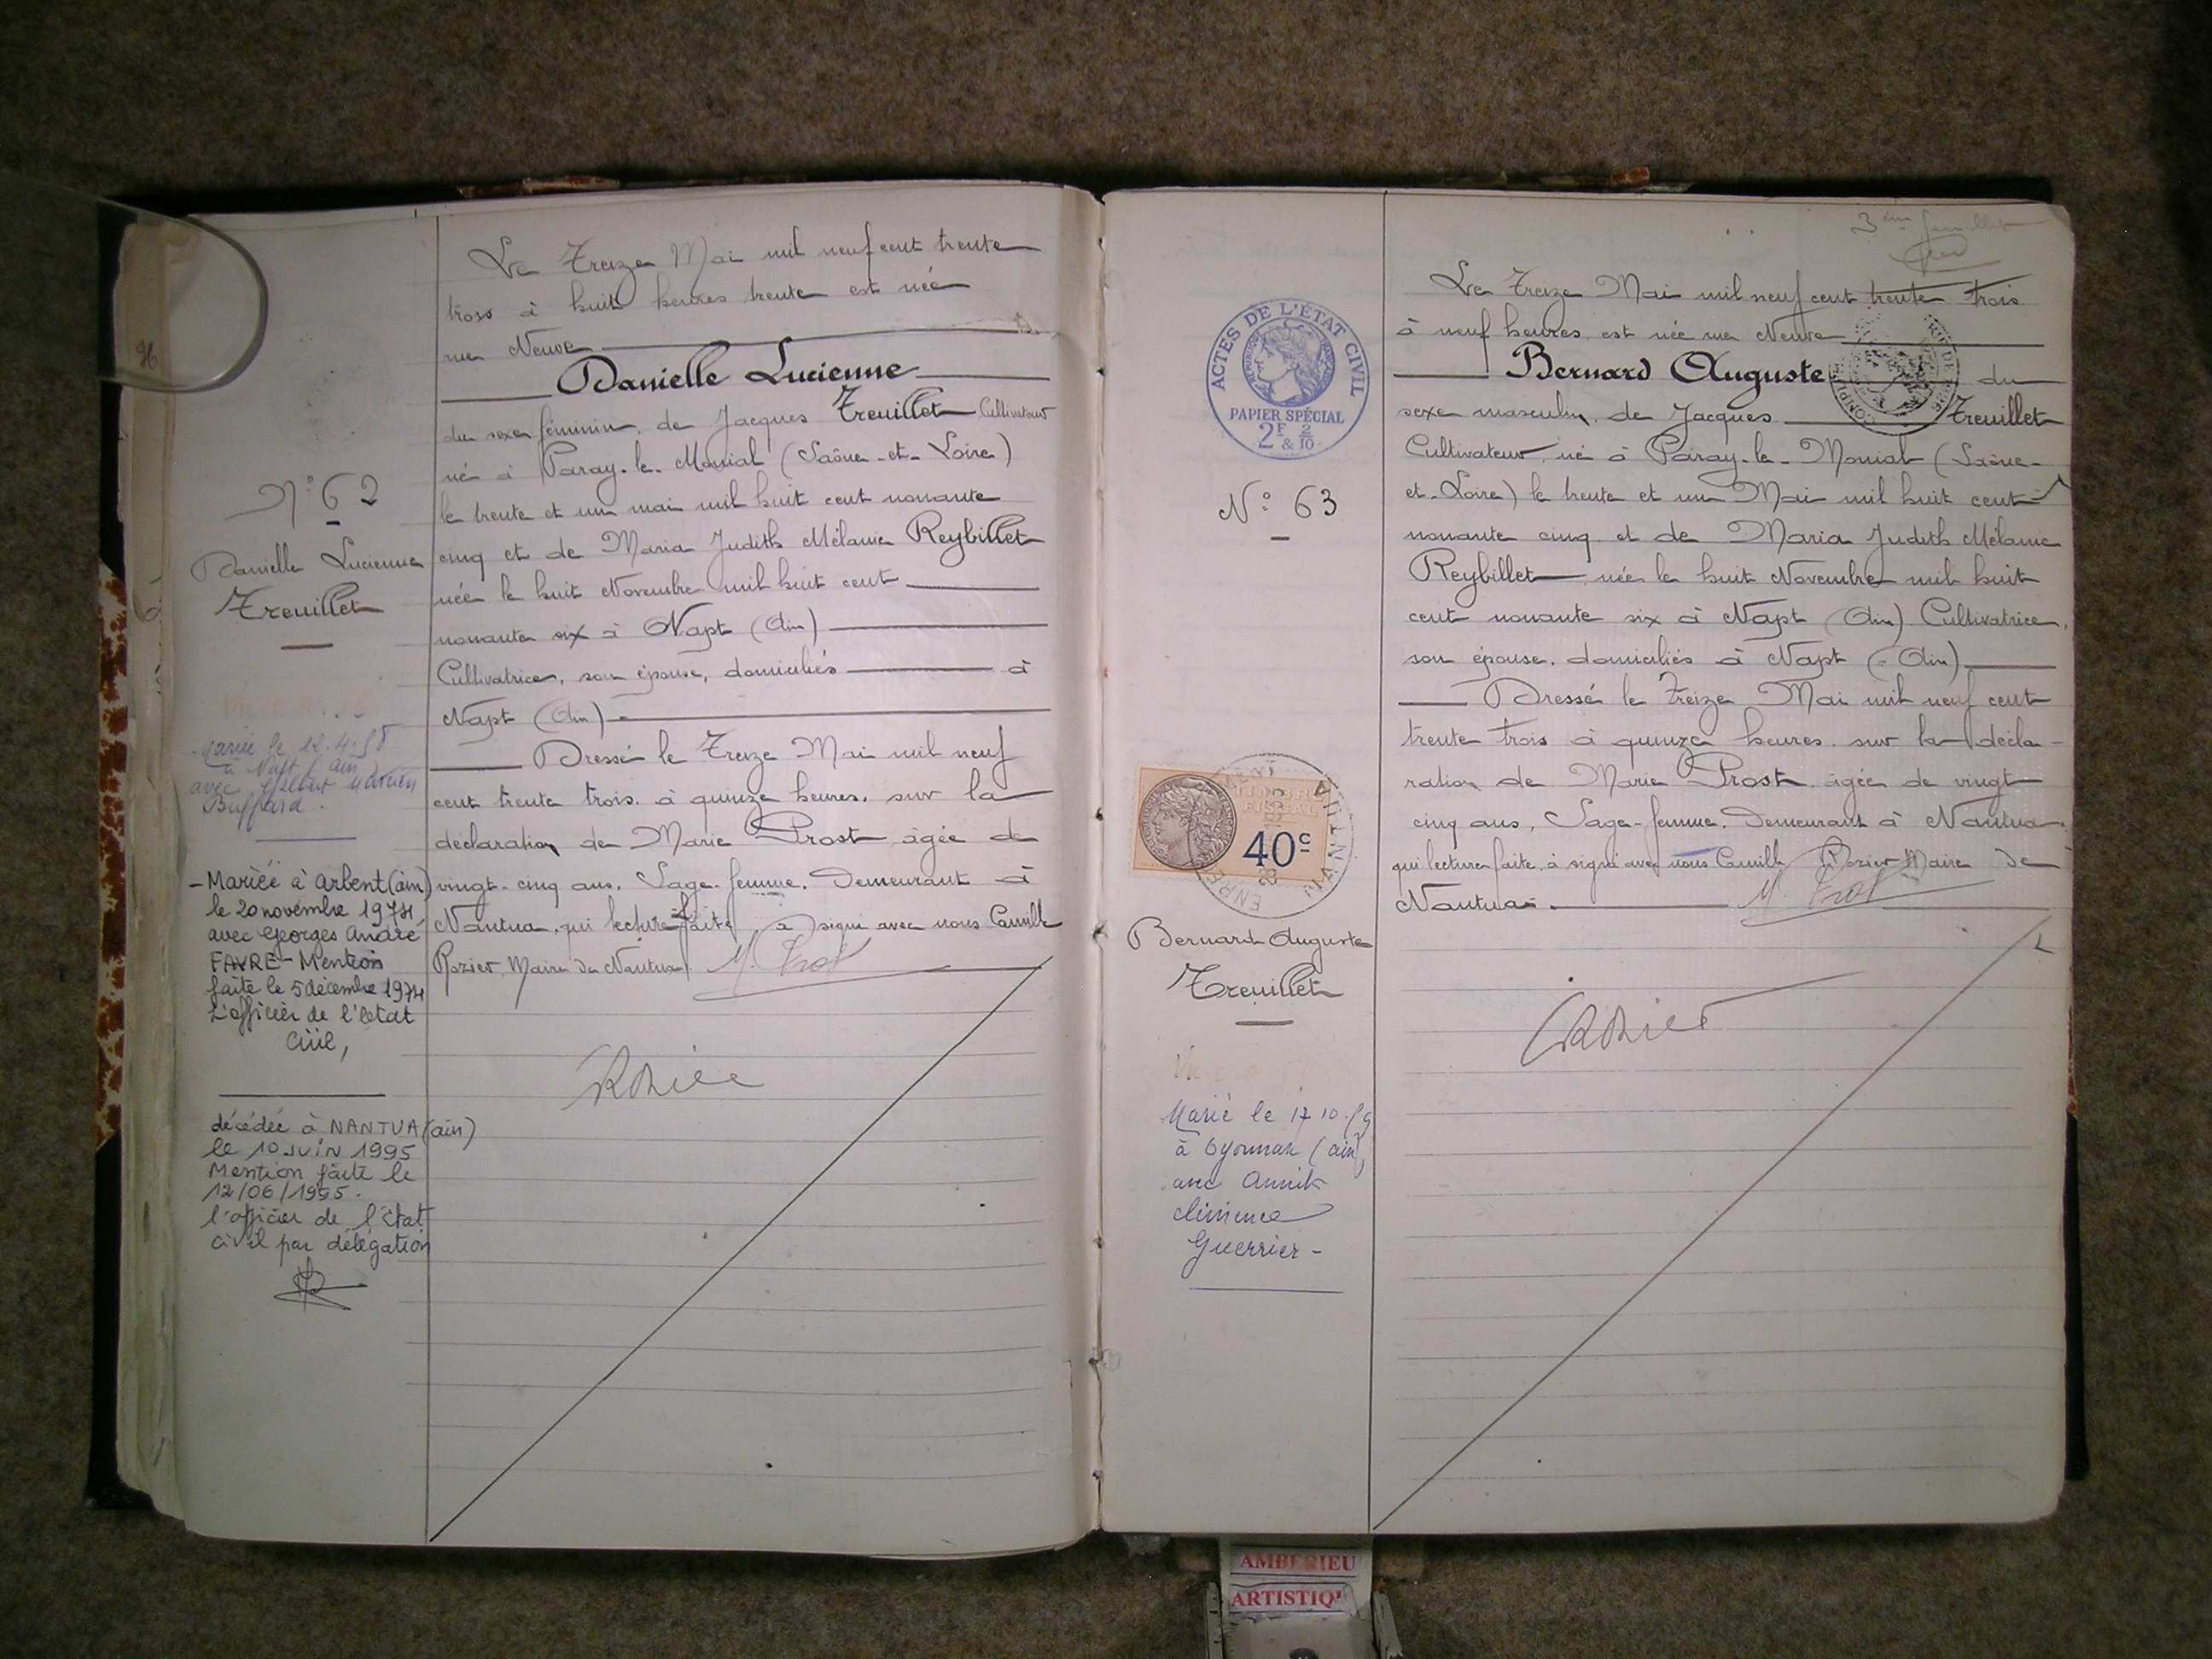 N° 62
Danielle Lucienne
Treuillet
Mariée le 12.4.58
à Napt (ain)
avec
Buffard.
- Mariée à Arbent (ain)
le 20 novembre 1974,
avec Georges André
FAVRE - Mention
faite le 5 décembre 1974
L'officier de l'état
civil,
décédée à NANTUA (ain)
le 10 JUIN 1995
Mention faite le
12/06/1995.
l'officier de l'état
civil par délégation
Le Treize Mai mil neuf cent trente
trois à huit heures trente est née
rue Neuve
Danielle Lucienne
du sexe féminin, de Jacques Treuillet Cultivateur
né à Paray-le-Monial (Saône-et-Loire)
le trente et un mai mil huit cent nonante
cinq et de Maria Judith Mélanie Reybillet
née le huit Novembre mil huit cent
nonante six à Napt (Ain)
Cultivatrice, son épouse, domiciliés à
Napt (Ain)
Dressé le Treize Mai mil neuf
cent trente trois à quinze heures, sur la
déclaration de Marie Prost âgée de
vingt-cinq ans, Sage-femme, Demeurant à
Nantua, qui lecture faite a signé avec nous Camille
Rozier, Maire de Nantua. M. Prost
Rozier
ACTES DE L'ÉTAT CIVIL
PAPIER SPÉCIAL
2F & 2/10
N° 63
40c
NANTUA
Bernard Auguste
Treuillet
Marié le 17.10.59
à Oyonnax (ain),
avec Annick
Clémence
Guerrier -
3ème feuillet
Le Treize Mai mil neuf cent trente trois
à neuf heures est née rue Neuve
Bernard Auguste du
sexe masculin, de Jacques Treuillet
Cultivateur, né à Paray-le-Monial (Saône-
et-Loire) le trente et un Mai mil huit cent
nonante cinq et de Maria Judith Mélanie
Reybillet, née le huit Novembre mil huit
cent nonante six à Napt (Ain) Cultivatrice,
son épouse, domiciliés à Napt (Ain)
Dressé le Treize Mai mil neuf cent
trente trois à quinze heures, sur la décla-
ration de Marie Prost âgée de vingt
cinq ans, Sage-femme, Demeurant à Nantua
qui lecture faite, a signé avec nous Camille Rozier Maire de
Nantua. M. Prost
Rozier
AMBERIEU
ARTISTIQU